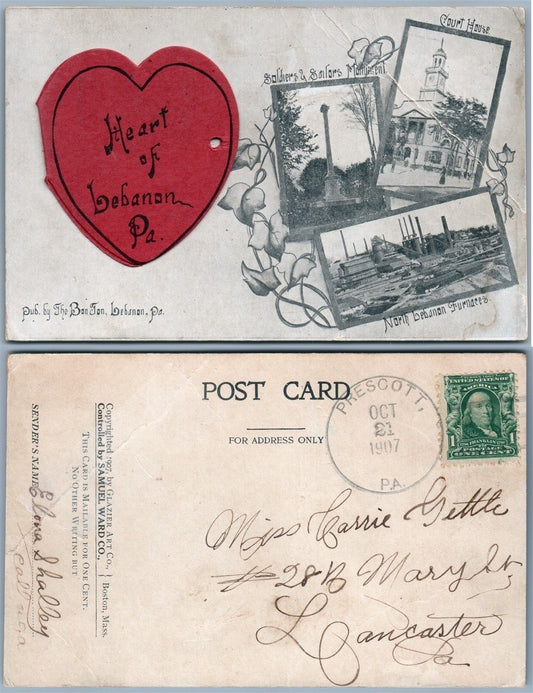 Court House
Soldiers & Sailors Monument
Heart
of
Lebanon
Pa.
North Lebanon Furnaces
Pub. by The Bon Ton, Lebanon, Pa.
POST CARD
FOR ADDRESS ONLY
PRESCOTT,
OCT
21
1907
PA.
UNITED STATES OF
AMERICA
1
FRANKLIN
1
POSTAGE
ONE CENT
Copyrighted 1907, by GLAZIER ART CO., } Boston, Mass.
Controlled by SAMUEL WARD CO.,
THIS CARD IS MAILABLE FOR ONE CENT.
NO OTHER WRITING BUT
SENDER'S NAME
Shelley
Miss Carrie Gettle
# 28 N Mary St
Lancaster
Pa